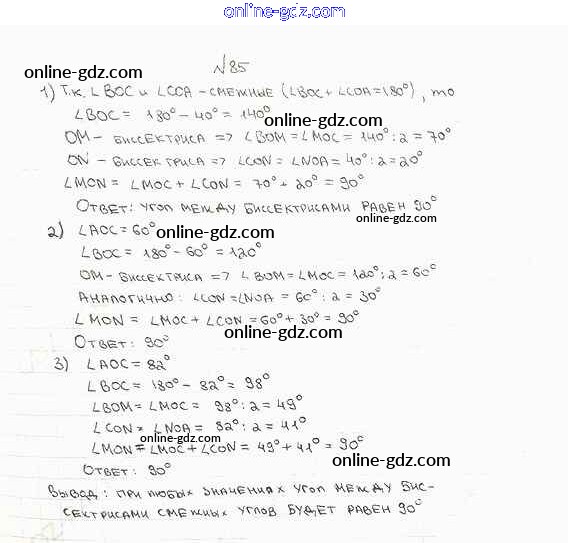 online-gdz.com
№85
online-gdz.com
1) Т.к. ∠BOC и ∠COA - смежные (∠BOC + ∠COA = 180°), то
∠BOC = 180° - 40° = 140°
online-gdz.com
OM - биссектриса => ∠BOM = ∠MOC = 140° : 2 = 70°
online-gdz.com
ON - биссектриса => ∠CON = ∠NOA = 40° : 2 = 20°
∠MON = ∠MOC + ∠CON = 70° + 20° = 90°
Ответ: угол между биссектрисами равен 90°
online-gdz.com
2) ∠AOC = 60°
online-gdz.com
∠BOC = 180° - 60° = 120°
OM - биссектриса => ∠BOM = ∠MOC = 120° : 2 = 60°
Аналогично: ∠CON = ∠NOA = 60° : 2 = 30°
∠MON = ∠MOC + ∠CON = 60° + 30° = 90°
online-gdz.com
Ответ: 90°
3) ∠AOC = 82°
∠BOC = 180° - 82° = 98°
online-gdz.com
∠BOM = ∠MOC = 98° : 2 = 49°
∠CON = ∠NOA = 82° : 2 = 41°
online-gdz.com
∠MON = ∠MOC + ∠CON = 49° + 41° = 90°
online-gdz.com
Ответ: 90°
Вывод: при любых значениях угол между бис-
сектрисами смежных углов будет равен 90°
online-gdz.com